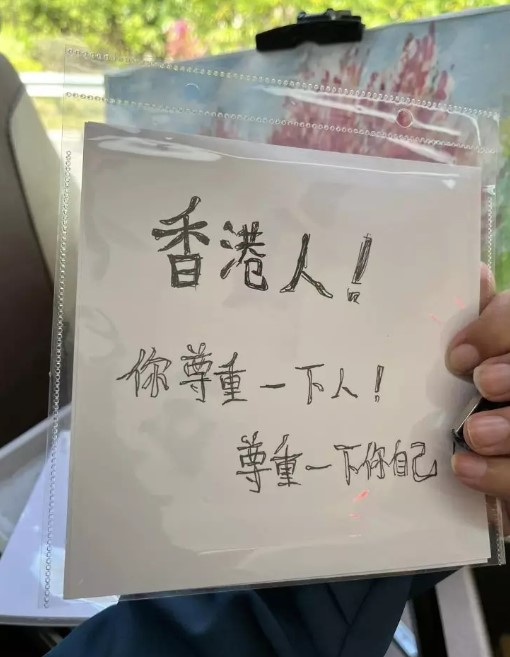 香港人！
你尊重一下人！
尊重一下你自己